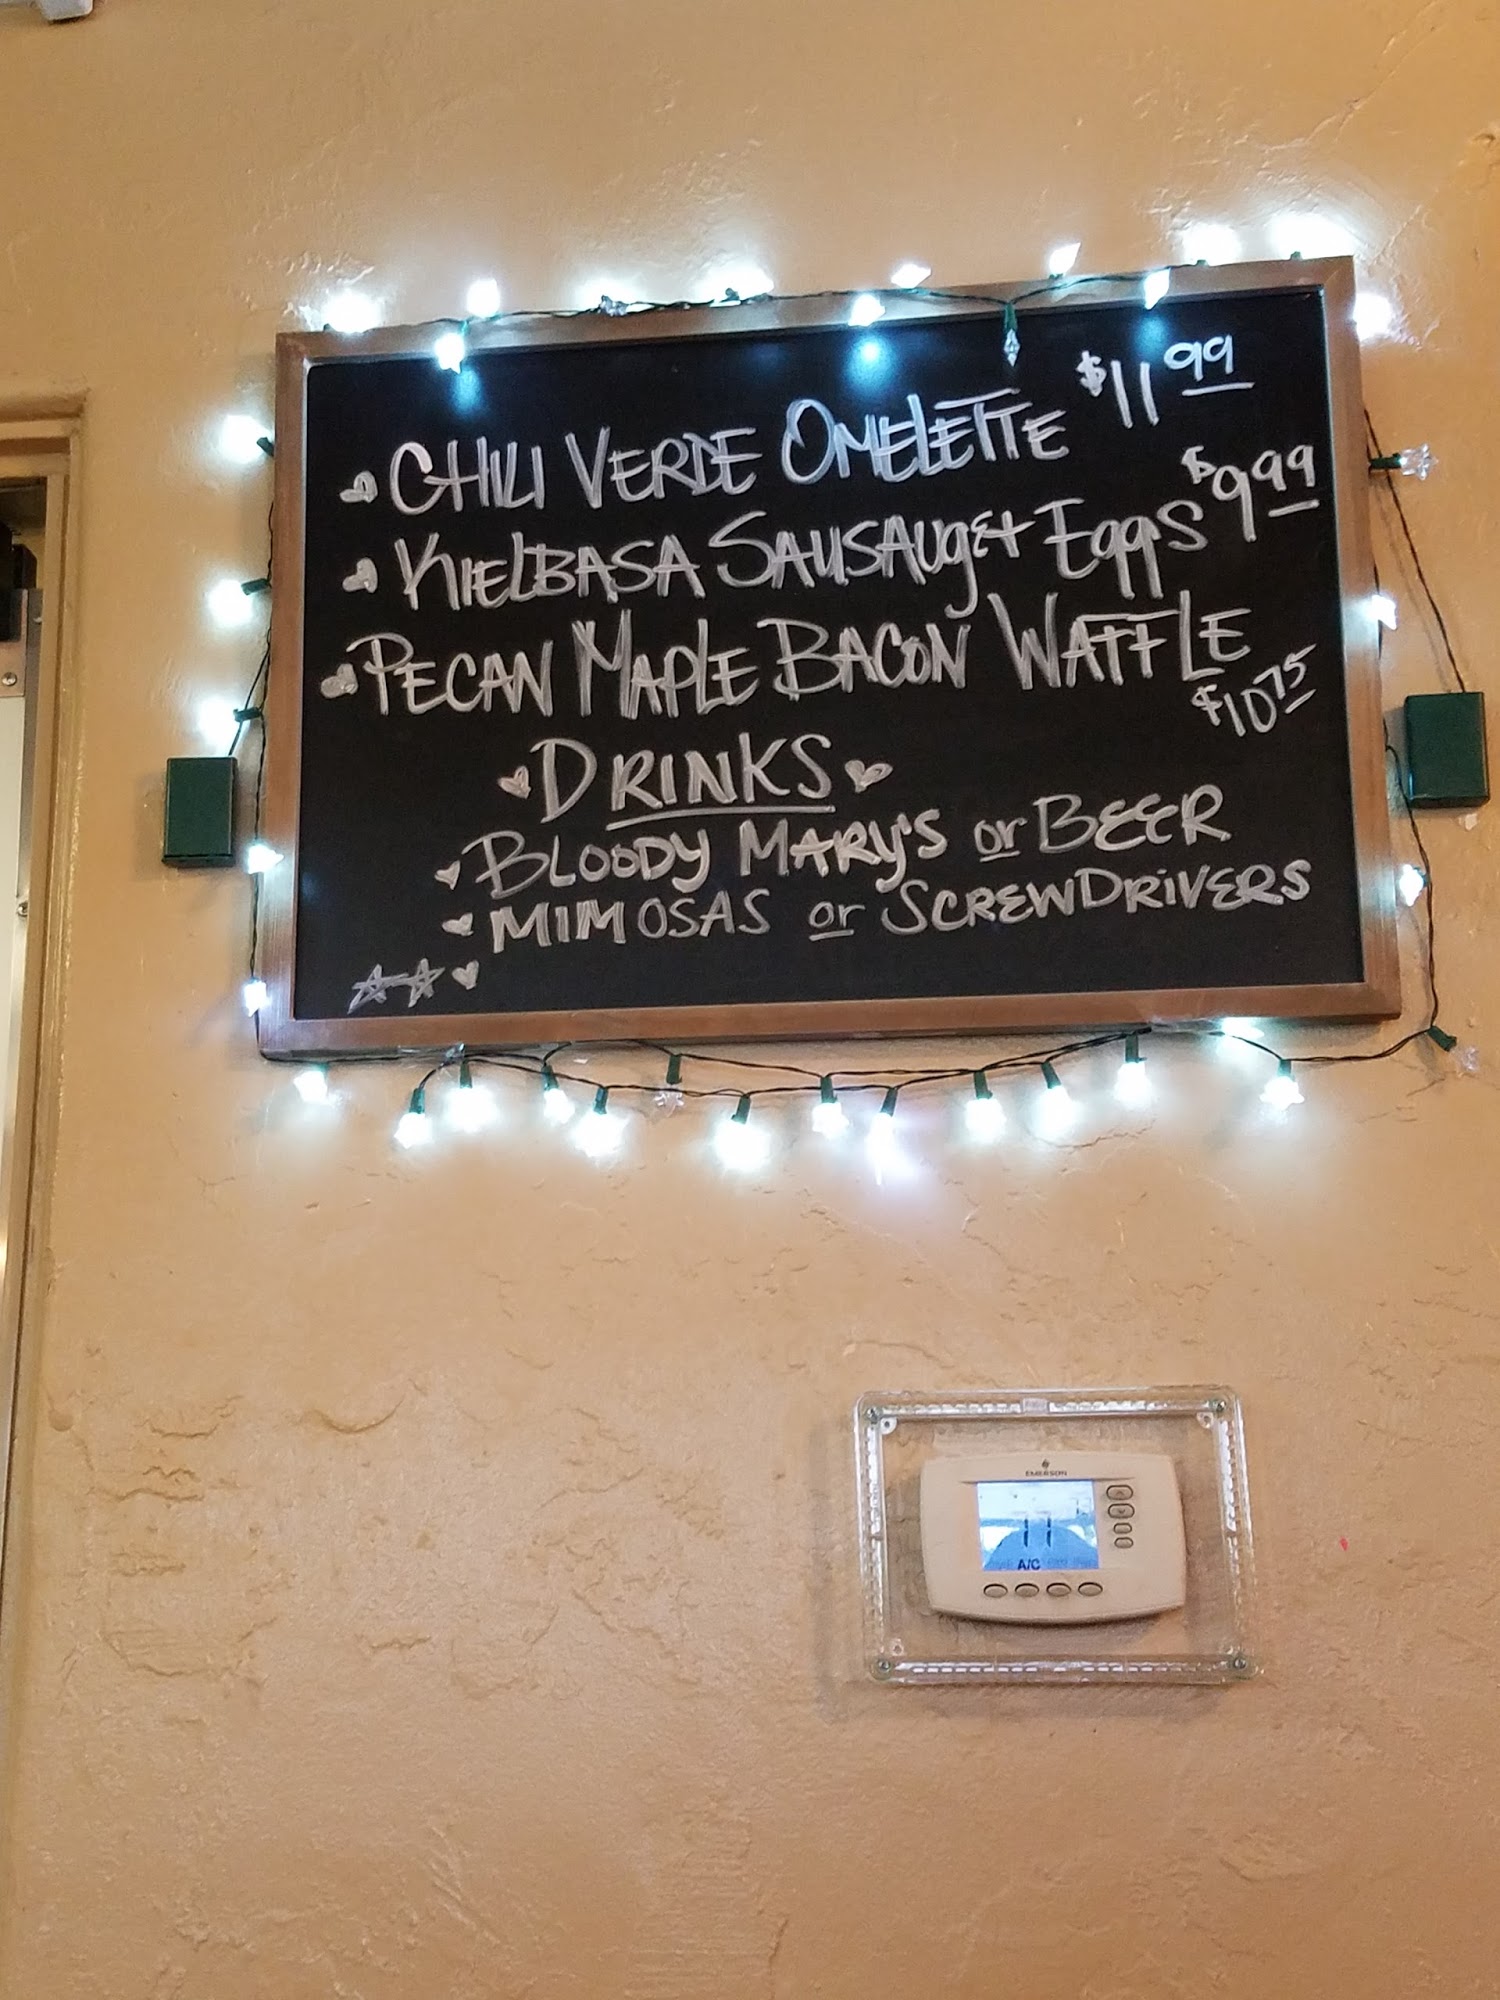 CHILI VERDE OMELETTE $11.99
KIELBASA SAUSAUGE + EGGS $9.99
PECAN MAPLE BACON WAFFLE
$10.75
DRINKS
BLOODY MARY'S or BEER
MIMOSAS or SCREWDRIVERS
EMERSON
77
A/C